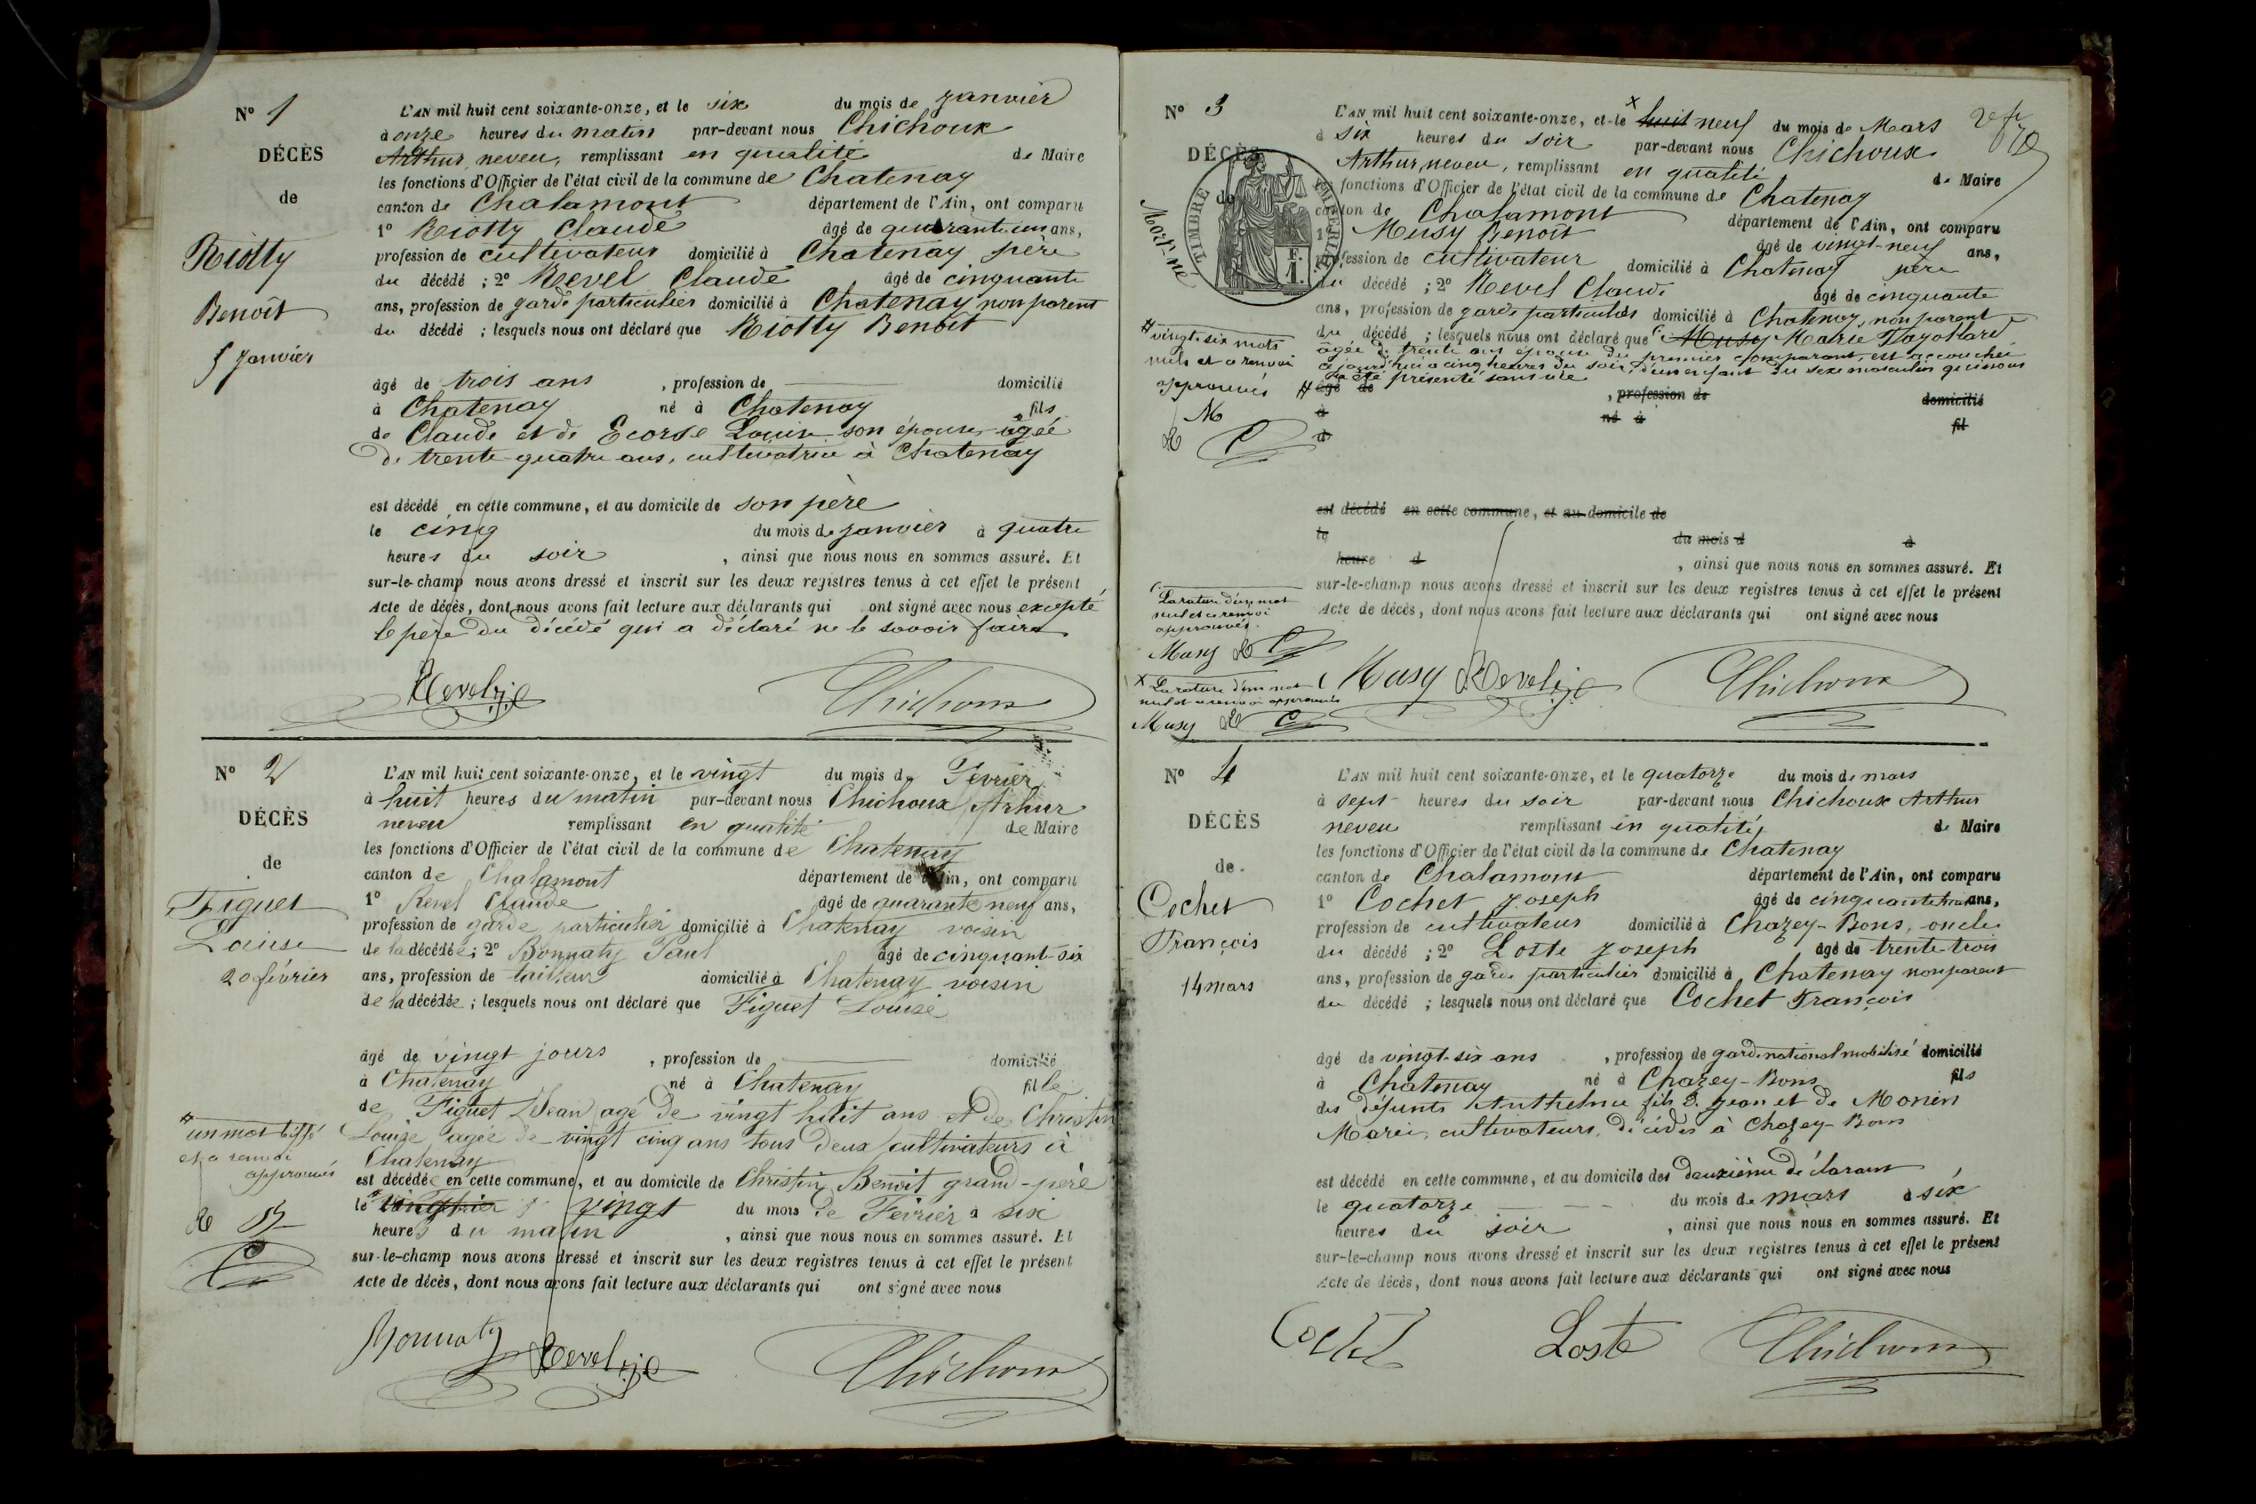 N° 1
DÉCÈS
de
Riotty
Benoît
5 Janvier
L'AN mil huit cent soixante-onze, et le six du mois de janvier
à onze heures du matin par-devant nous Chichoux
Arthur, neveu, remplissant en qualité de Maire
les fonctions d'Officier de l'état civil de la commune de Chatenay
canton de Chalamont département de l'Ain, ont comparu
1° Riotty Claude âgé de quarante un ans,
profession de cultivateur domicilié à Chatenay père
du décédé ; 2° Revel Claude âgé de cinquante
ans, profession de garde particulier domicilié à Chatenay non parent
du décédé ; lesquels nous ont déclaré que Riotty Benoît
âgé de trois ans , profession de domicilié
à Chatenay né à Chatenay fils
de Claude et de Ecorse Louise son épouse, agée
de trente quatre ans, cultivatrice à Chatenay
est décédé en cette commune, et au domicile de son père
le cinq du mois de janvier à quatre
heures du soir , ainsi que nous nous en sommes assuré. Et
sur-le-champ nous avons dressé et inscrit sur les deux registres tenus à cet effet le présent
Acte de décès, dont nous avons fait lecture aux déclarants qui ont signé avec nous excepté
le père du décédé qui a déclaré ne le savoir faire
Revel Chichoux
N° 2
DÉCÈS
de
Figuet
Louise
20 février
L'AN mil huit cent soixante-onze, et le vingt du mois de Fevrier
à huit heures du matin par-devant nous Chichoux Arthur
neveu remplissant en qualité de Maire
les fonctions d'Officier de l'état civil de la commune de Chatenay
canton de Chalamont département de l'Ain, ont comparu
1° Revel Claude âgé de quarante neuf ans,
profession de garde particulier domicilié à Chatenay voisin
de la décédée ; 2° Bonnaty Paul âgé de cinquant-six
ans, profession de tailleur domicilié à Chatenay voisin
de la décédée ; lesquels nous ont déclaré que Figuet Louise
âgé de vingt jours , profession de domicilié
à Chatenay né à Chatenay fille
de Figuet Jean agé de vingt huit ans et de Christin
Louise agée de vingt cinq ans tous deux cultivateurs à
Chatenay
est décédée en cette commune, et au domicile de Christin Benoit grand-père
le vingt du mois de Fevrier à six
heures du matin , ainsi que nous nous en sommes assuré. Et
sur-le-champ nous avons dressé et inscrit sur les deux registres tenus à cet effet le présent
Acte de décès, dont nous avons fait lecture aux déclarants qui ont signé avec nous
# un mot biffé
et a renvoi
approuvés
R B
C
Bonnaty Revel Chichoux
N° 3
DÉCÈS
de
Mort-né
TIMBRE IMPÉRIAL
F. 1.
L'AN mil huit cent soixante-onze, et le x huit neuf du mois de Mars
à six heures du soir par-devant nous Chichoux
Arthur, neveu, remplissant en qualité de Maire
les fonctions d'Officier de l'état civil de la commune de Chatenay
canton de Chalamont département de l'Ain, ont comparu
1° Musy Benoît âgé de vingt-neuf ans,
profession de cultivateur domicilié à Chatenay père
du décédé ; 2° Revel Claude âgé de cinquante
ans, profession de garde particulier domicilié à Chatenay, non parent
du décédé ; lesquels nous ont déclaré que Musy Marie
agée de trente ans épouse du premier comparant, est accouchée
aujourd'hui à cinq heures du soir, d'un enfant du sexe masculin qui nous
a été présenté sans vie
# âgé de , profession de domicilié
à né à fil
d
est décédé en cette commune, et au domicile de
le du mois d à
heure d , ainsi que nous nous en sommes assuré. Et
sur-le-champ nous avons dressé et inscrit sur les deux registres tenus à cet effet le présent
Acte de décès, dont nous avons fait lecture aux déclarants qui ont signé avec nous
# vingt-six mots
nuls et a renvoi
approuvés
M
R C
La rature d'un mot
nul et a renvoi
approuvés.
Musy R C
x La rature d'un mot
nul et a renvoi approuvés
Musy R C
Musy Revel Chichoux
N° 4
DÉCÈS
de
Cochet
François
14 mars
L'AN mil huit cent soixante-onze, et le quatorze du mois de mars
à sept heures du soir par-devant nous Chichoux Arthur
neveu remplissant en qualité de Maire
les fonctions d'Officier de l'état civil de la commune de Chatenay
canton de Chalamont département de l'Ain, ont comparu
1° Cochet Joseph âgé de cinquante trois ans,
profession de cultivateur domicilié à Chazey-Bons, oncle
du décédé ; 2° Loste Joseph âgé de trente-trois
ans, profession de garde particulier domicilié à Chatenay non parent
du décédé ; lesquels nous ont déclaré que Cochet François
âgé de vingt-six ans , profession de garde national mobilisé domicilié
à Chatenay né à Chazey-Bons fils
des défunts Anthelme fils de Jean et de Monin
Marie, cultivateurs, décédés à Chazey-Bons
est décédé en cette commune, et au domicile des deuxième déclarant
le quatorze du mois de mars à six
heures du soir , ainsi que nous nous en sommes assuré. Et
sur-le-champ nous avons dressé et inscrit sur les deux registres tenus à cet effet le présent
Acte de décès, dont nous avons fait lecture aux déclarants qui ont signé avec nous
Cochet Loste Chichoux